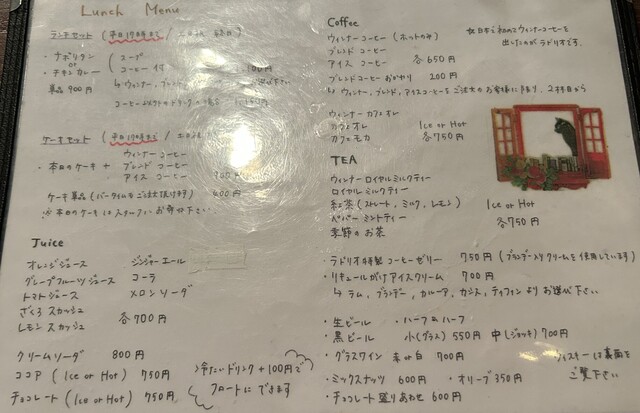 Lunch Menu
ランチセット (平日17時まで / 土日祝 終日)
・ナポリタン
or
・チキンカレー
スープ
コーヒー付
単品 900円
コーヒー以外のドリンクの場合
ケーキセット (平日17時まで / 土日祝
・本日のケーキ +
ウィンナーコーヒー
ブレンドコーヒー
アイスコーヒー
ケーキ単品 (バータイムもご注文頂けます) 400円
※本日のケーキはスタッフにお尋ね下さい。
Juice
オレンジジュース
グレープフルーツジュース
トマトジュース
ざくろスカッシュ
レモンスカッシュ
ジンジャーエール
コーラ
メロンソーダ
各700円
クリームソーダ 800円
ココア (Ice or Hot) 750円
チョコレート (Ice or Hot) 750円
冷たいドリンク+100円で
フロートにできます
Coffee
ウィンナーコーヒー (ホットのみ)
ブレンドコーヒー
アイスコーヒー
各650円
☆日本で初めてウィンナーコーヒーを
出したのがラドリオです。
ブレンドコーヒーおかわり 200円
↳ウィンナー、ブレンド、アイスコーヒーをご注文のお客様に限り、2杯目から
ウィンナーカフェオレ
カフェオレ
カフェモカ
Ice or Hot
各750円
TEA
ウィンナーロイヤルミルクティー
ロイヤルミルクティー
紅茶 (ストレート、ミルク、レモン)
ペパーミントティー
季節のお茶
Ice or Hot
各750円
・ラドリオ特製コーヒーゼリー 750円 (ブランデー入りクリームを使用しています)
・リキュールがけアイスクリーム 700円
↳ラム、ブランデー、カルーア、カシス、ティフィンよりお選び下さい
・生ビール ・ハーフ&ハーフ
・黒ビール 小(グラス) 550円 中(ジョッキ) 700円
・グラスワイン 赤or白 700円
・ミックスナッツ 600円 ・オリーブ 350円
・チョコレート盛りあわせ 600円
ウィスキーは裏面を
ご覧下さい